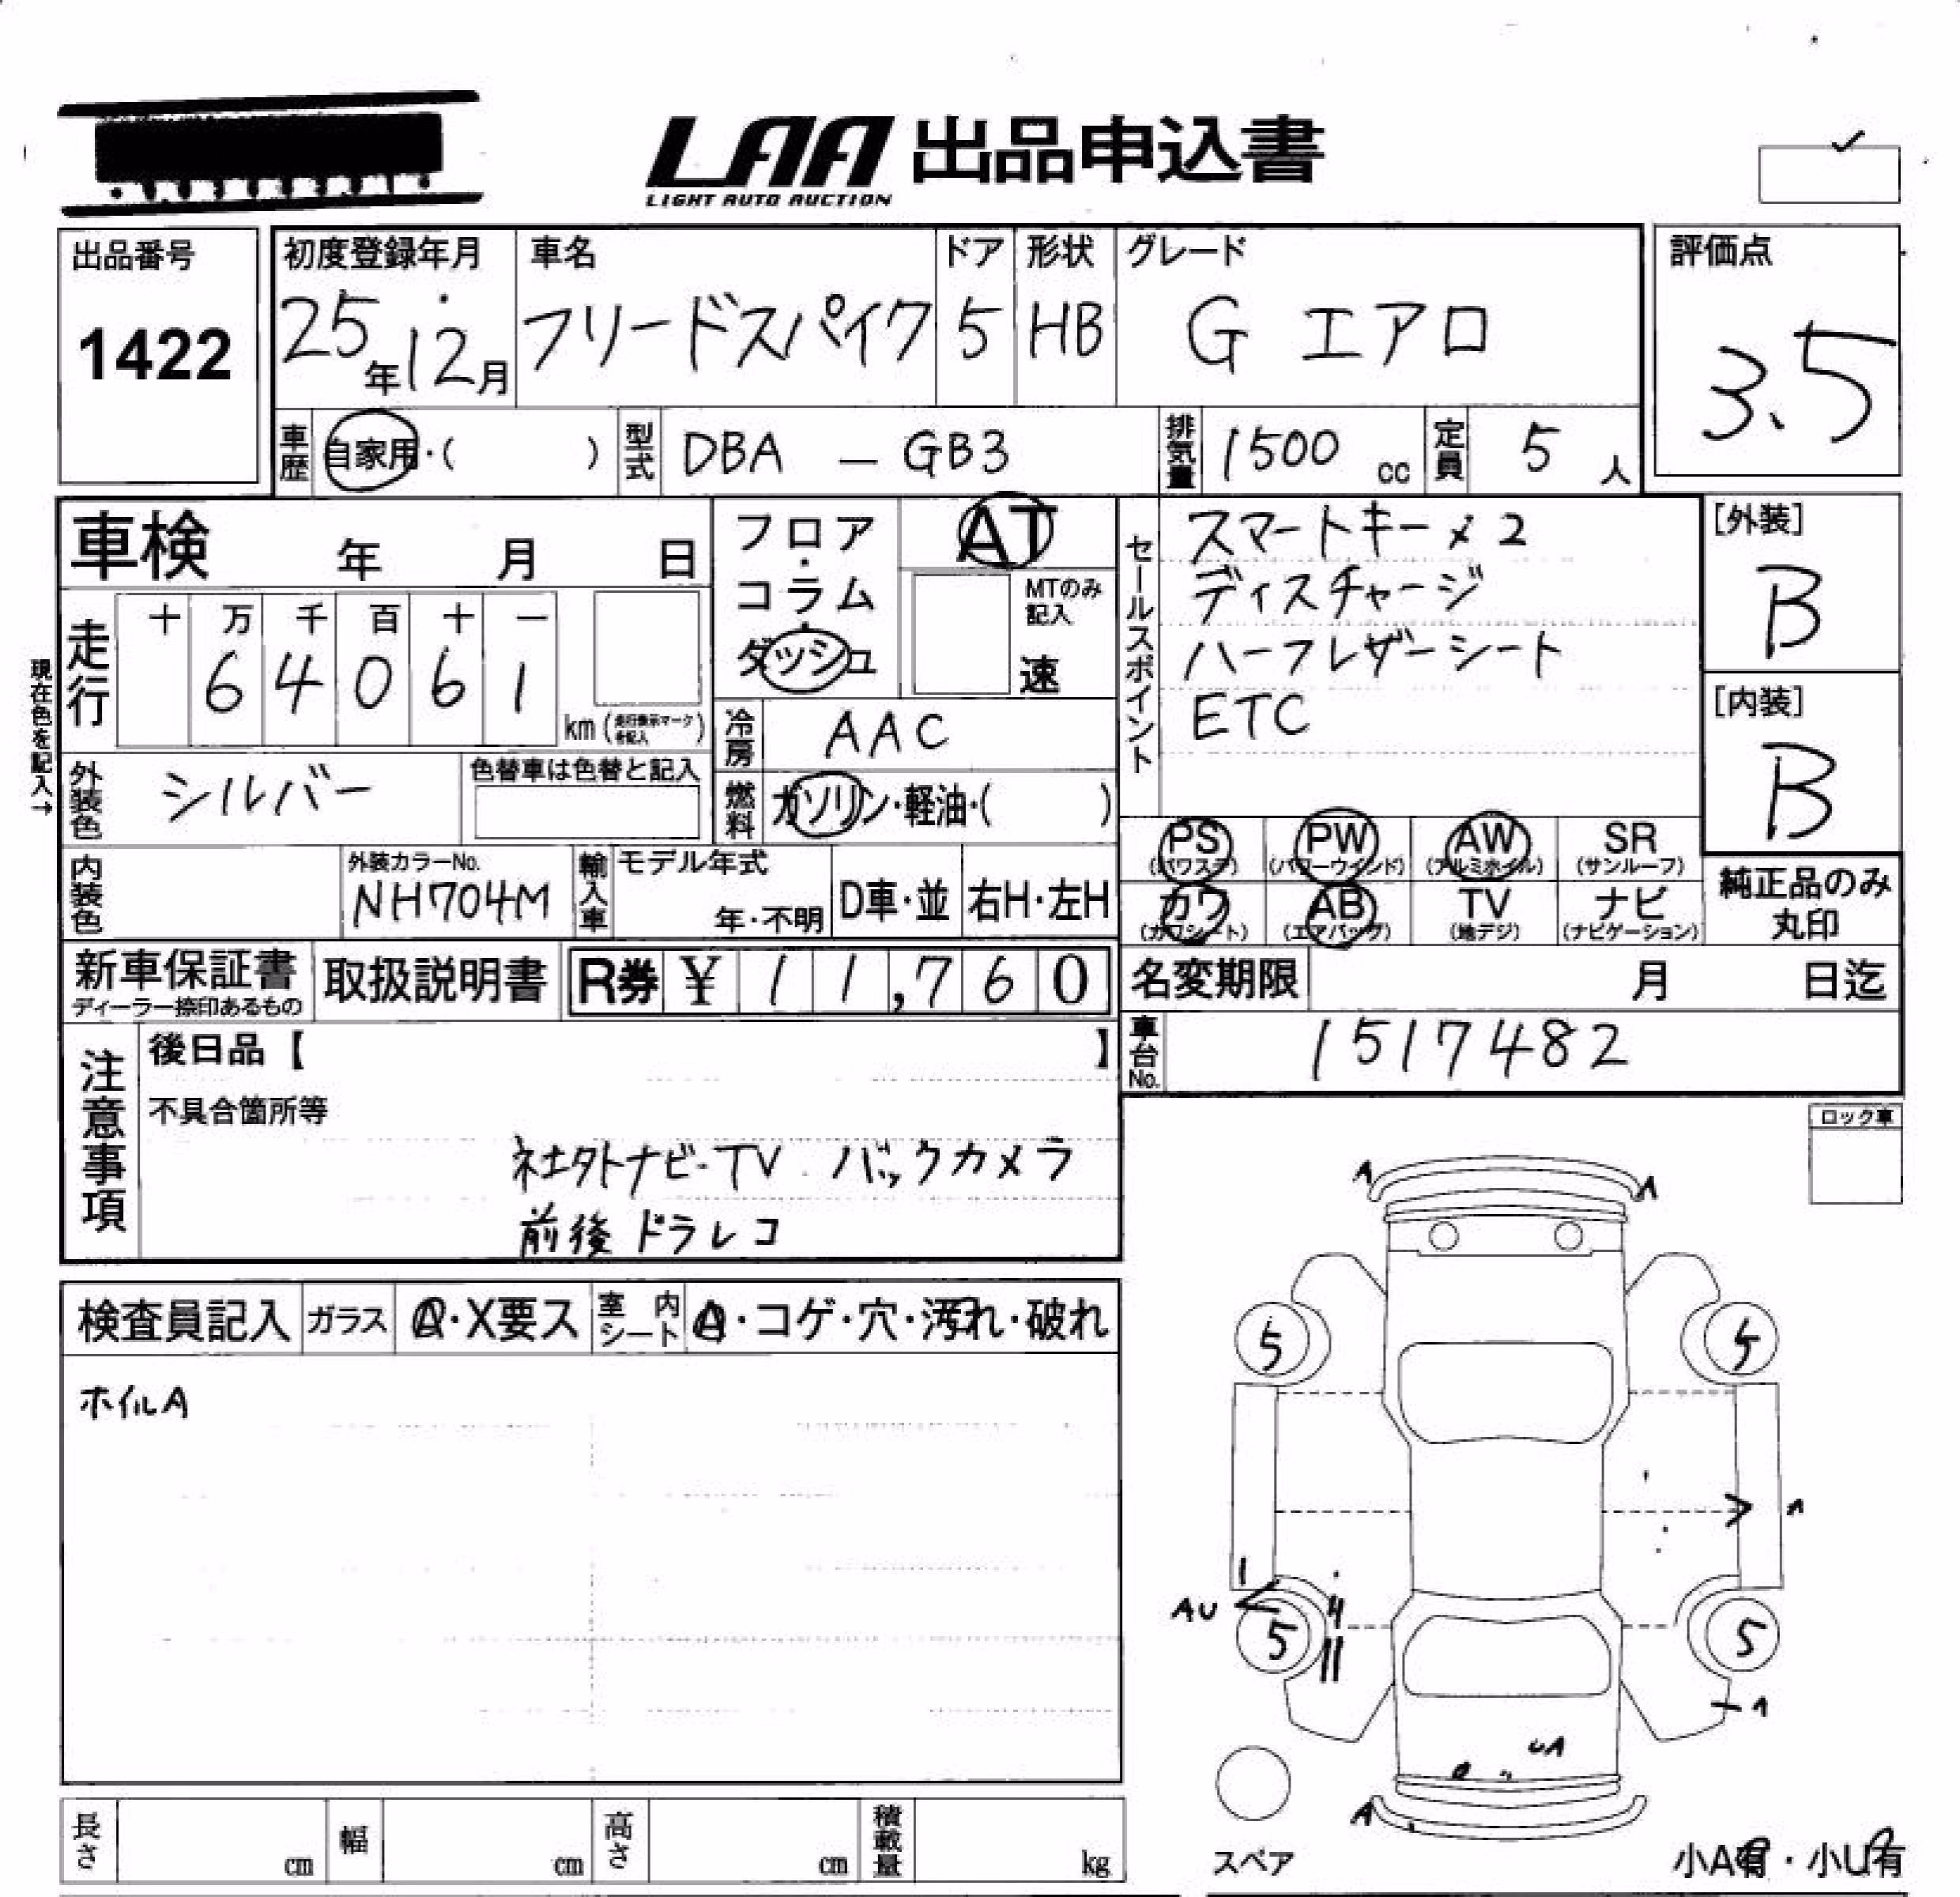 LAA 出品申込書
LIGHT AUTO AUCTION
出品番号
1422
初度登録年月
25年12月
車名
フリードスパイク
ドア
5
形状
HB
グレード
G エアロ
評価点
3.5
車歴
自家用・( )
型式
DBA - GB3
排気量
1500 cc
定員
5 人
車検 年 月 日
現在色を記入→
走行
十 万 千 百 十 一
6 4 0 6 1
km (走行換示マーク
を記入)
フロア・
コラム・
ダッシュ
AT
MTのみ
記入
速
冷房
AAC
燃料
ガソリン・軽油・( )
外装色
シルバー
色替車は色替と記入
内装色
外装カラーNo.
NH704M
輸入車
モデル年式
年・不明
D車・並
右H・左H
セールスポイント
スマートキー×2
ディスチャージ
ハーフレザーシート
ETC
[外装]
B
[内装]
B
PS
(パワステ)
PW
(パワーウインド)
AW
(アルミホイル)
SR
(サンルーフ)
カワ
(カワシート)
AB
(エアバッグ)
TV
(地デジ)
ナビ
(ナビゲーション)
純正品のみ
丸印
新車保証書
ディーラー捺印あるもの
取扱説明書
R券 ¥ 1 1,7 6 0
名変期限 月 日迄
車台No.
1517482
注意事項
後日品【 】
不具合箇所等
社外ナビ・TV バックカメラ
前後ドラレコ
ロック車
検査員記入
ガラス
A・X要ス
室内シート
A・コゲ・穴・汚れ・破れ
ホイルA
A
A
5
5
A
AU
5
5
A
UA
A
スペア
小A有・小U有
長さ cm
幅 cm
高さ cm
積載量 kg